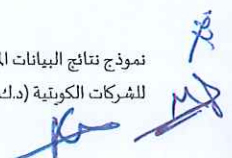 نموذج نتائج البيانات
للشركات الكويتية (د.ك